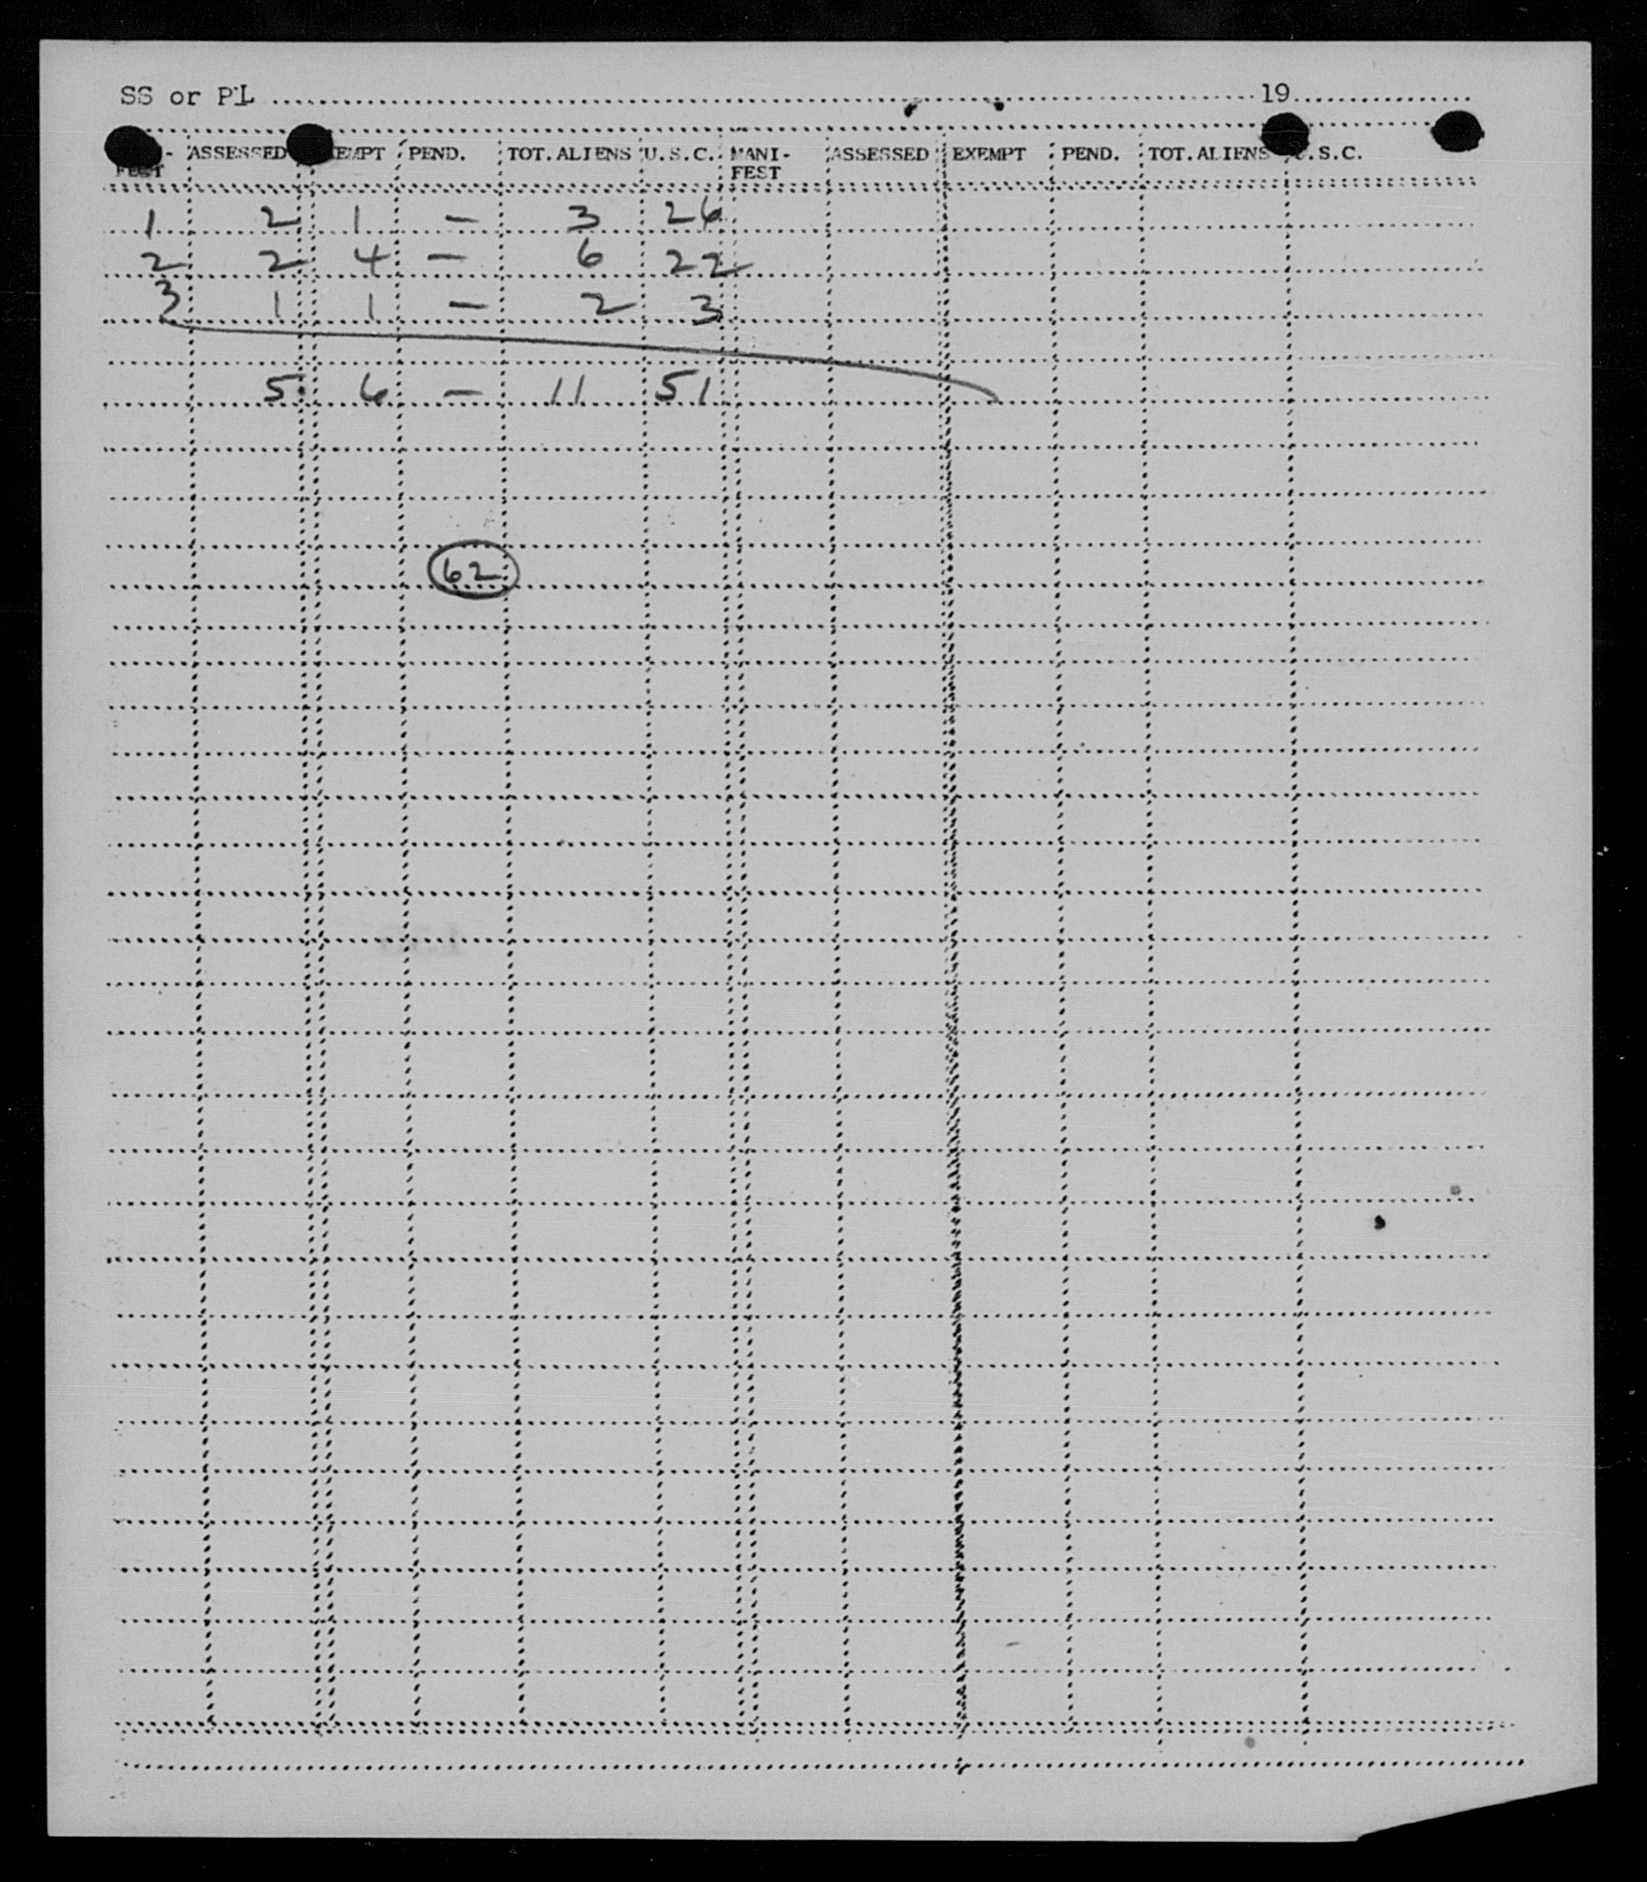 SS or PL 19
ASSESSED EXEMPT PEND. TOT.ALIENS U.S.C. MANI- ASSESSED EXEMPT PEND. TOT.ALIENS U.S.C.
FEST FEST
1 2 1 - 3 26
2 2 4 - 6 22
3 1 1 - 2 3
5 6 - 11 51
62